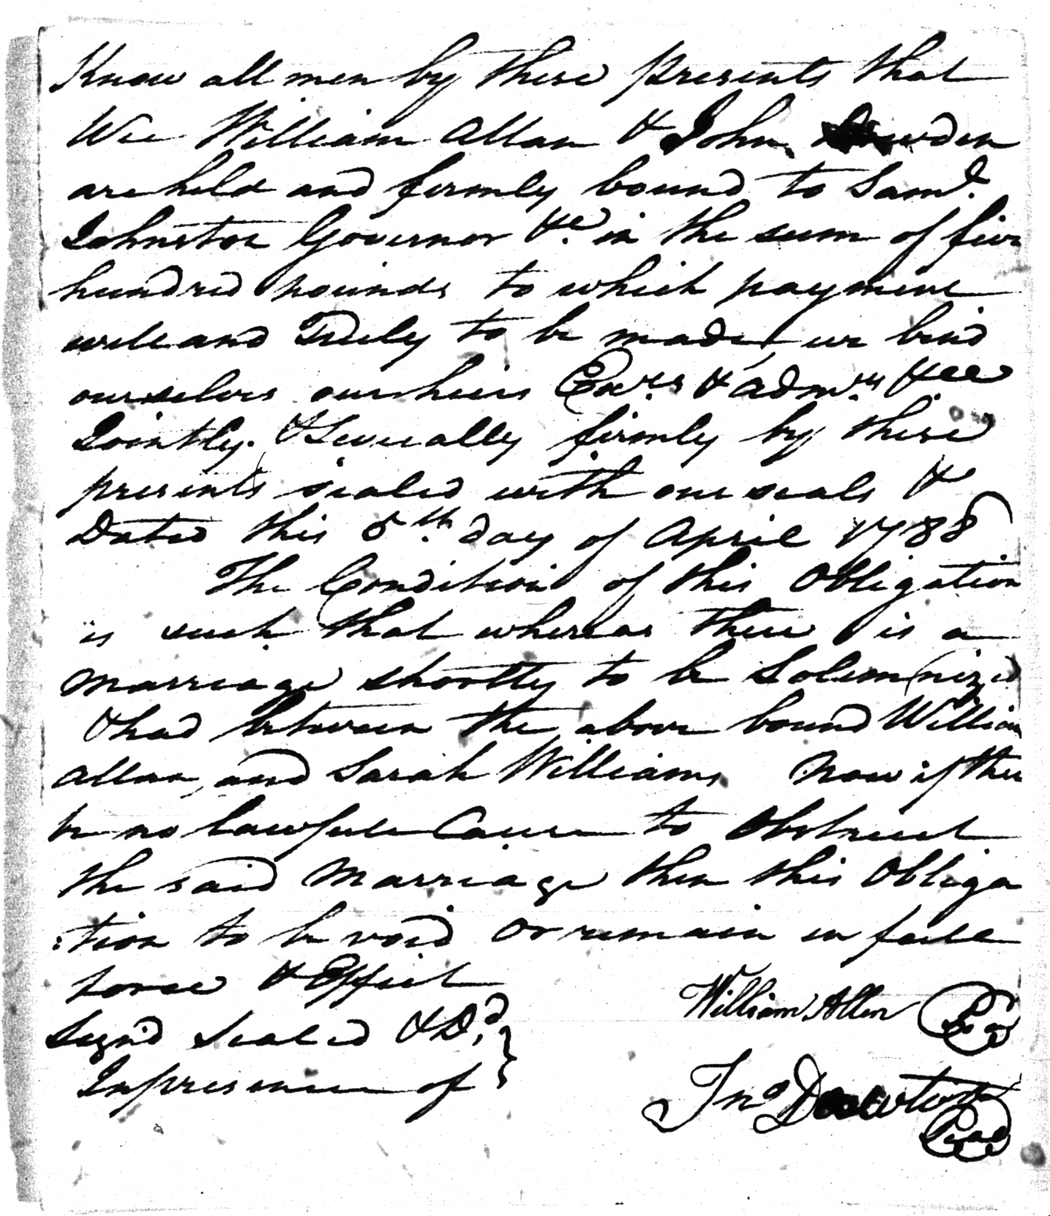 Know all men by these presents that
Wee William Allan & John
are held and firmly bound to Saml.
Johnston Governor &c. in the sum of five
hundred pounds to which payment
well and Truly to be made we bind
ourselves our heirs Exrs. & admrs. &cc
Jointly. & Severally firmly by these
presents sealed with our seals &
Dated this 5th. day of April 1788
The Condition of this Obligation
is such that whereas there is a
Marriage shortly to be Solemnized
& had between the above bound William
Allan, and Sarah Williams Now if there
be no lawfull Cause to Obstruct
the said Marriage then this Obliga
:tion to be void Or remain in full
force & Effect
Sign'd Sealed & Dd.
In presence of
William Allen Seal
Jno
Seal